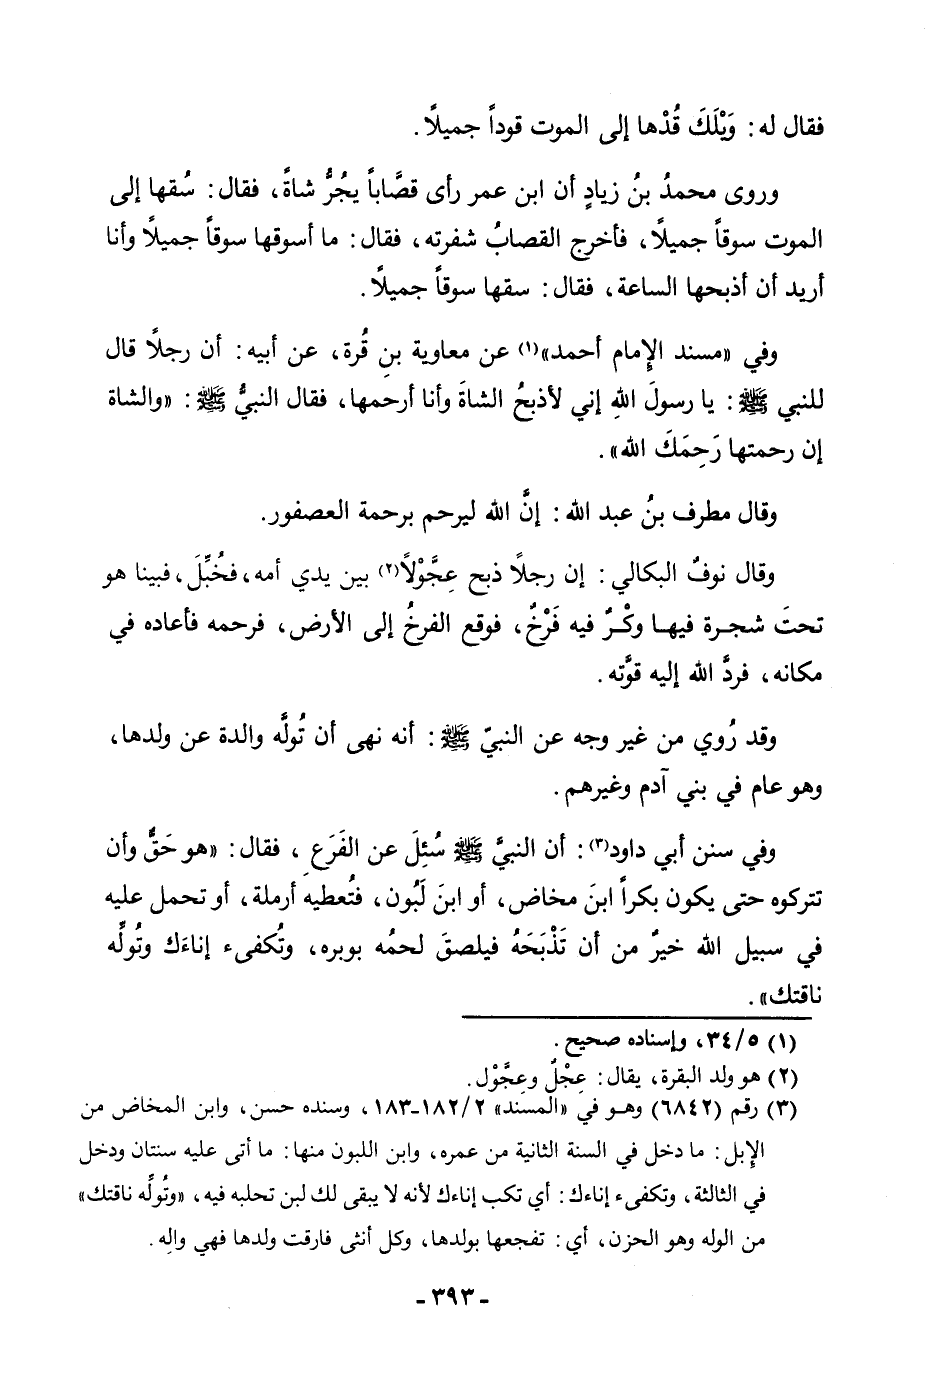 فقال له: وَيْلَكَ قُدْها إلى الموت قوداً جميلاً.
وروى محمدُ بنُ زيادٍ أن ابن عمر رأى قصَّاباً يجُرُّ شاةً، فقال: سُقها إلى
الموت سوقاً جميلاً، فأخرج القصابُ شفرته، فقال: ما أسوقها سوقاً جميلاً وأنا
أريد أن أذبحها الساعة، فقال: سقها سوقاً جميلاً.
وفي «مسند الإمام أحمد»(١) عن معاوية بنِ قُرة، عن أبيه: أن رجلاً قال
للنبي ﷺ: يا رسولَ اللهِ إني لأذبحُ الشاةَ وأنا أرحمها، فقال النبيُّ ﷺ: «والشاة
إن رحمتها رَحِمَكَ الله».
وقال مطرف بنُ عبد الله: إنَّ الله ليرحم برحمة العصفور.
وقال نوفٌ البكالي: إن رجلاً ذبح عِجَّوْلاً(٢) بين يدي أمه، فخُبِّلَ، فبينا هو
تحتَ شجرة فيها وكْرٌ فيه فَرْخٌ، فوقع الفرخُ إلى الأرض، فرحمه فأعاده في
مكانه، فردَّ الله إليه قوَّته.
وقد رُوي من غير وجه عن النبيّ ﷺ: أنه نهى أن تُولَّه والدة عن ولدها،
وهو عام في بني آدم وغيرهم.
وفي سنن أبي داود(٣): أن النبيَّ ﷺ سُئِلَ عن الفَرَعِ، فقال: «هو حَقٌّ وأن
تتركوه حتى يكون بكراً ابنَ مخاض، أو ابنَ لَبُون، فتُعطيه أرملة، أو تحمل عليه
في سبيل الله خيرٌ من أن تَذْبَحَهُ فيلصقَ لحمُه بوبره، وتُكفىء إناءَك وتُولِّه
ناقتك».
(١) ٣٤/٥، وإسناده صحيح.
(٢) هو ولد البقرة، يقال: عِجْلٌ وعِجَّوْل.
(٣) رقم (٦٨٤٢) وهو في «المسند» ١٨٢/٢-١٨٣، وسنده حسن، وابن المخاض من
الإبل: ما دخل في السنة الثانية من عمره، وابن اللبون منها: ما أتى عليه سنتان ودخل
في الثالثة، وتكفىء إناءك: أي تكب إناءك لأنه لا يبقى لك لبن تحلبه فيه، «وتُولِّه ناقتك»
من الوله وهو الحزن، أي: تفجعها بولدها، وكل أنثى فارقت ولدها فهي والِه.
- ٣٩٣ -